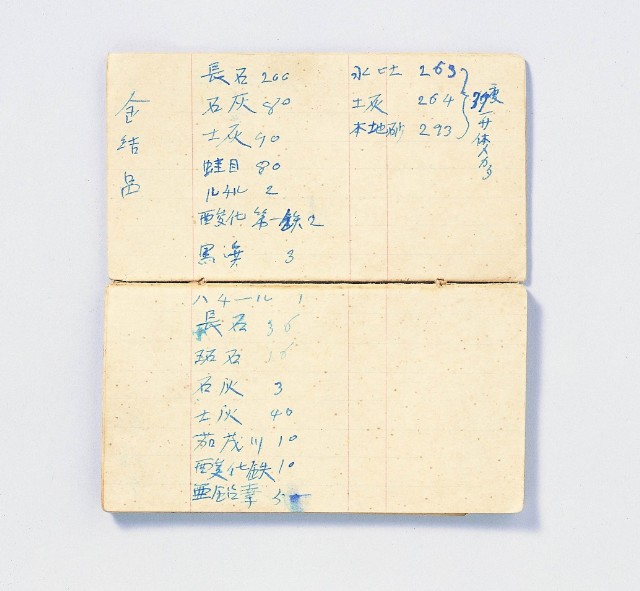 長石 200
石灰 80
土灰 90
蛙目 80
ルチル 2
酸化第一鉄 2
黒浜 3
金結晶
水土 263
土灰 264
本地砂 293
ハチール 1
長石 35
硅石 15
石灰 3
土灰 40
加茂川 10
酸化鉄 10
亜鉛華 5